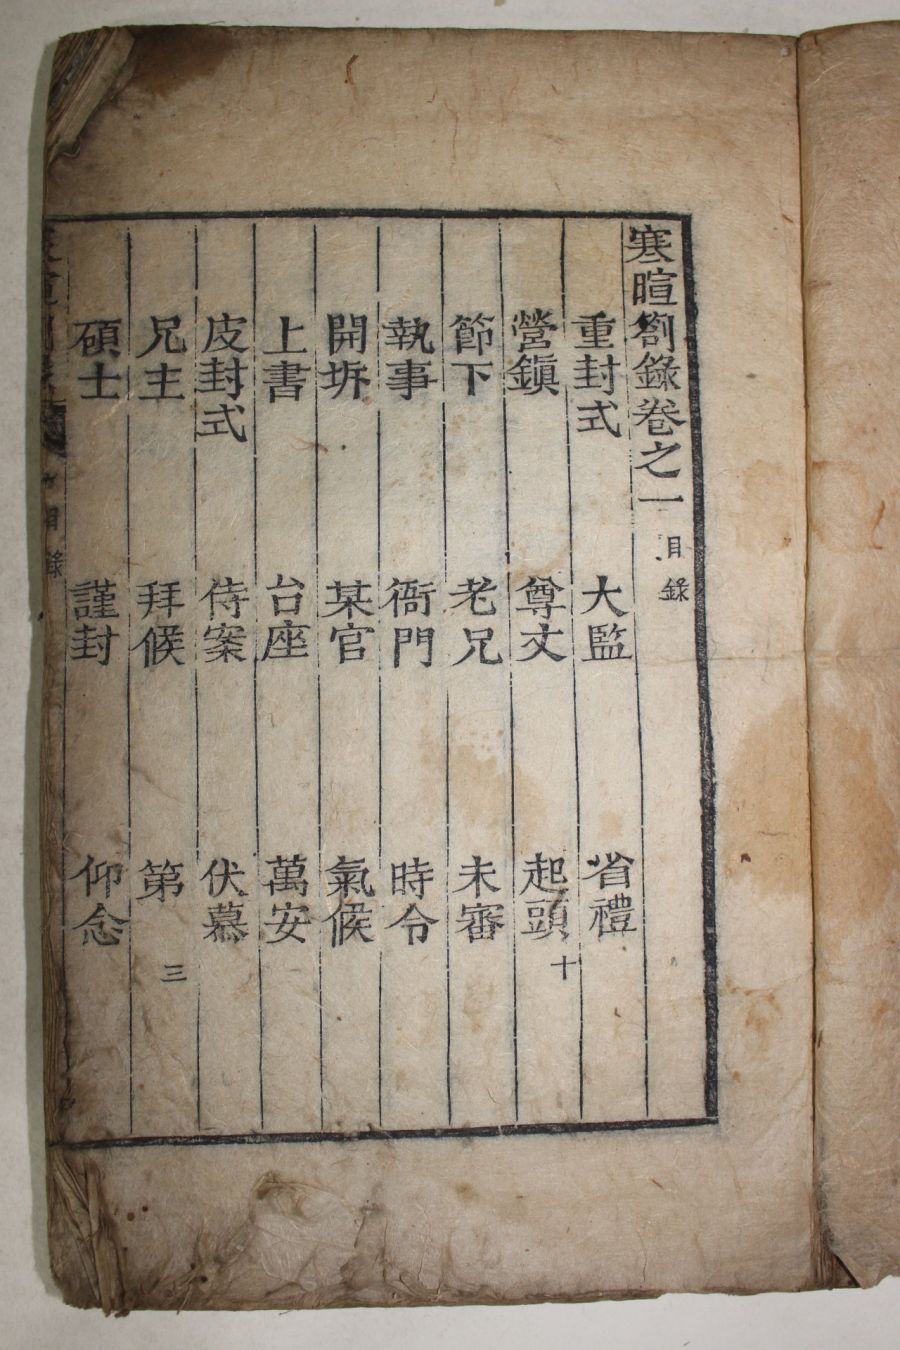 寒暄劄錄卷之一 目錄
重封式 大監 省禮
營鎭 尊丈 起頭 十
節下 老兄 未審
執事 衙門 時令
開坼 某官 氣候
上書 台座 萬安
皮封式 侍案 伏慕
兄主 拜候 第 三
碩士 謹封 仰念
目錄